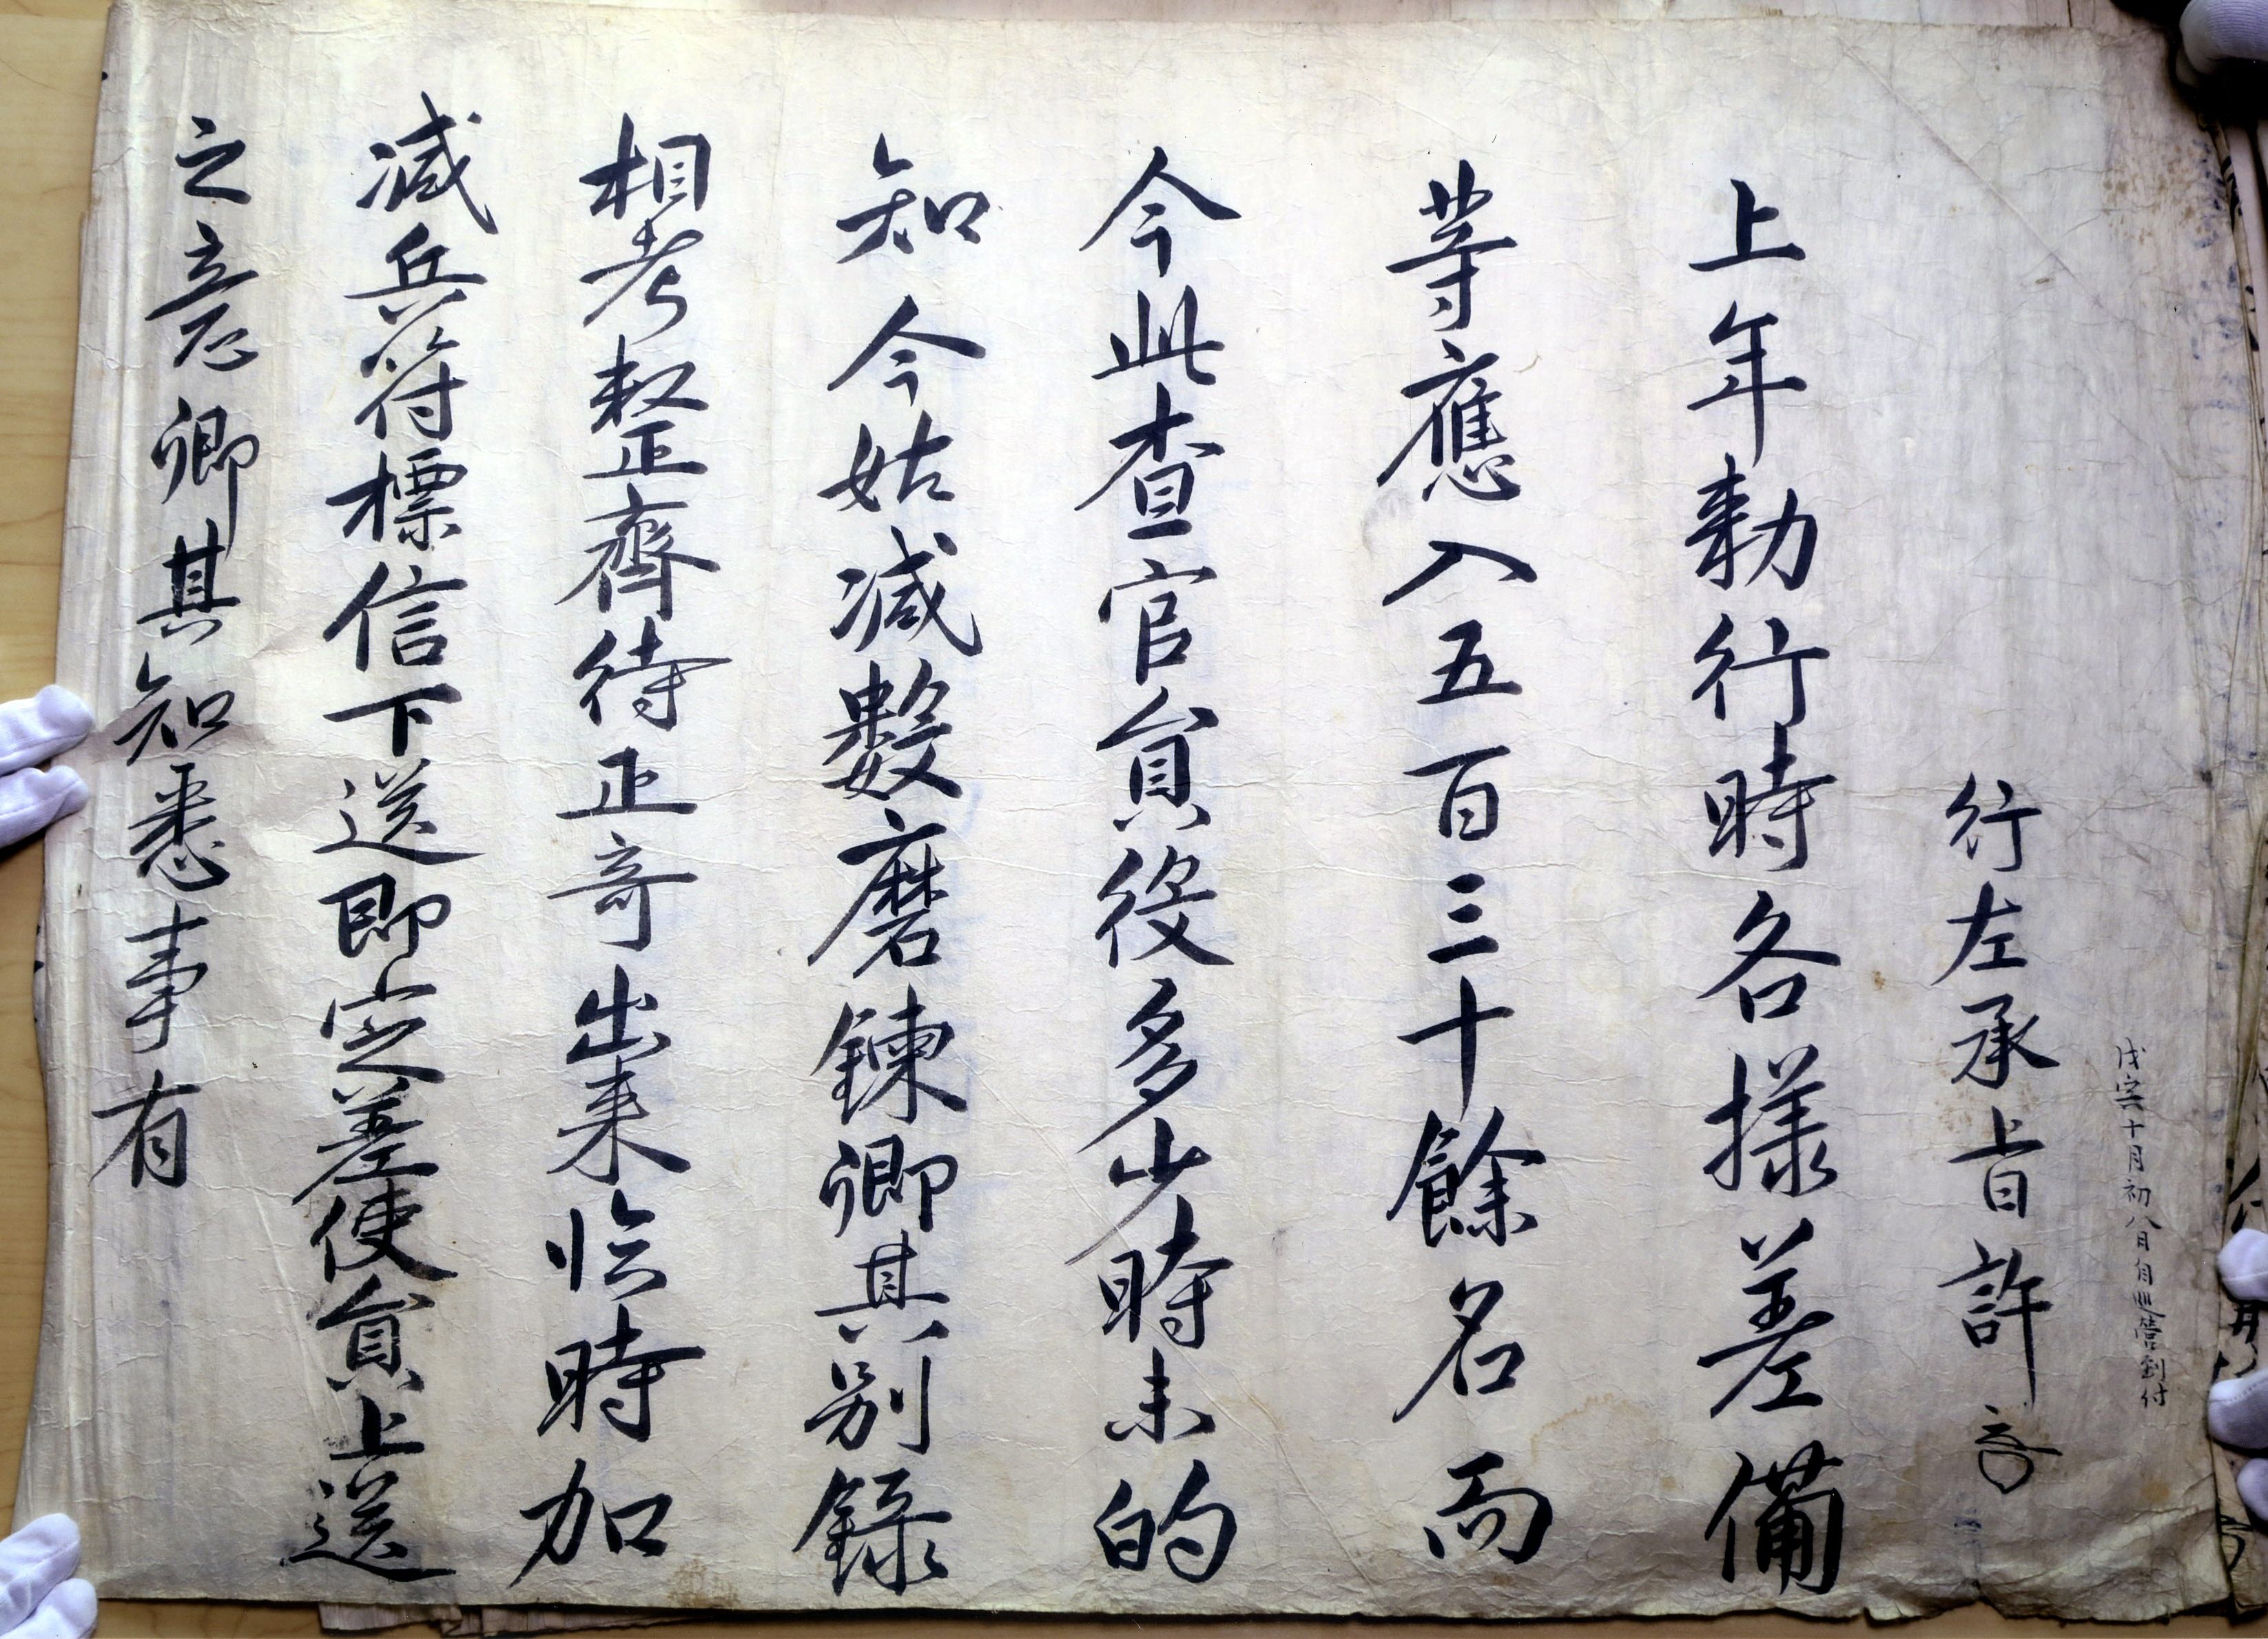 戊寅十月初八日自巡營到付
行左承旨許
上年勅行時各樣差備
等應入五百三十餘名而
今此查官員役多少時未的
知今姑減數磨鍊卿其別錄
相考整齊待正奇出来臨時加
減兵符標信下送即定差使員上送
之意卿其知悉事有